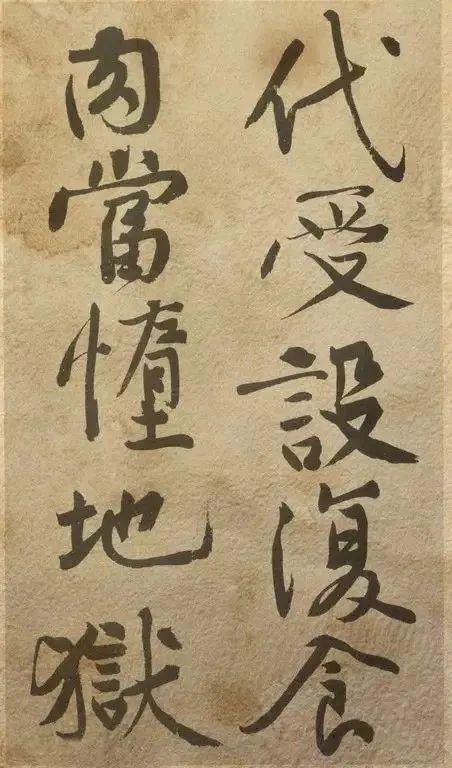 代受設復食
肉當憻地獄